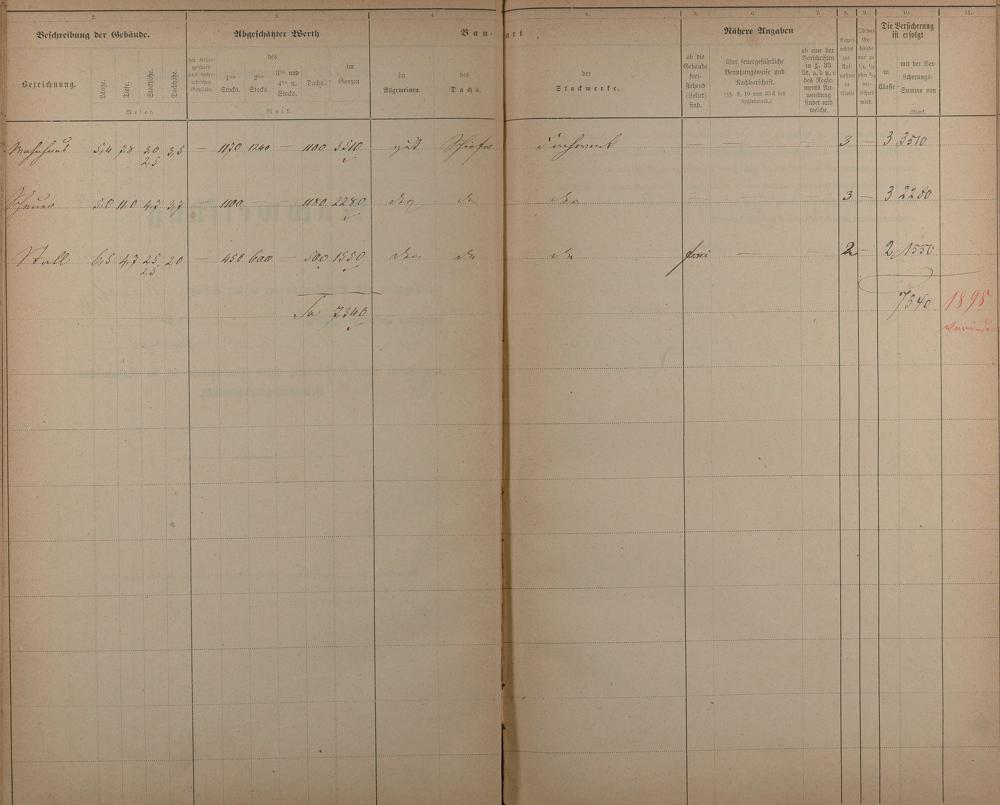 2. 3. 4. 4. 5. 6. 7. 8. 9. 10. 11.
Beschreibung der Gebäude. Abgeschätzter Werth Bauart Nähere Angaben Die Versicherung ist erfolgt
Bezeichnung. Länge. Tiefe. Stockhöhe. Dachhöhe.
Meter.
des
1ten Stocks. 2ten Stocks. 3ten und 4ten u. Stocks. Dachs. im Ganzen
Mark.
im Allgemeinen. des Dachs. der Stockwerke.
ob die Gebäude freistehend (isolirt) sind.
über feuergefährliche Benutzungsweise und Nachbarschaft.
ob eine der Vorschriften in §. 33 lit. a, b, u. c des Reglements Anwendung findet und welche.
in Classe mit der Versicherungs-Summe von
Mark.
Wohnhaus 5,4 7,8 3,0 2,5 3,5 — 1170 1240 — 1100 3510 gut Schiefer Fachwerk — — 3 — 3 3510
Scheuer 5,0 11,0 4,7 3,7 — 1100 — 1180 2280 dgl — — 3 — 3 2280
Stall 6,5 4,7 2,5 2,5 2,0 — 450 600 — 500 1550 frei — 2 — 2 1550
Sa 7340 7340 1898